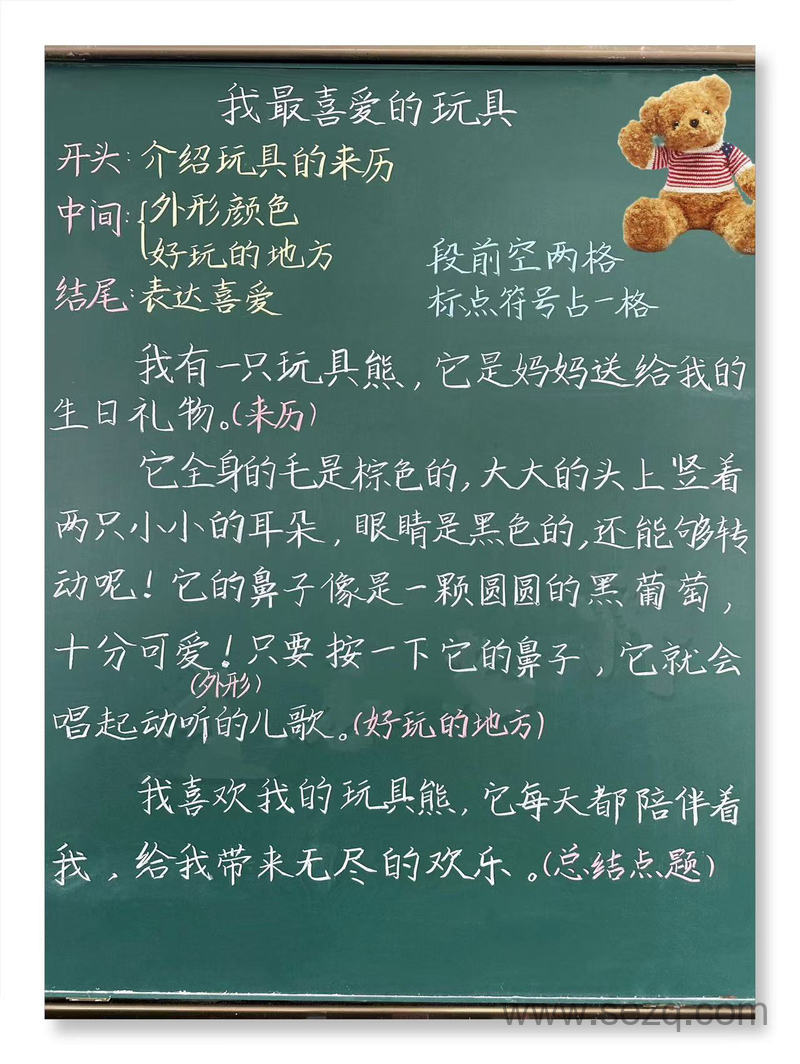 我最喜爱的玩具
开头:介绍玩具的来历
中间:{外形颜色
好玩的地方
结尾:表达喜爱
段前空两格
标点符号占一格
我有一只玩具熊，它是妈妈送给我的
生日礼物。(来历)
它全身的毛是棕色的,大大的头上竖着
两只小小的耳朵，眼睛是黑色的,还能够转
动呢！它的鼻子像是一颗圆圆的黑葡萄，
十分可爱！只要按一下它的鼻子，它就会
(外形)
唱起动听的儿歌。(好玩的地方)
我喜欢我的玩具熊，它每天都陪伴着
我，给我带来无尽的欢乐。(总结点题)
www.sezq.com